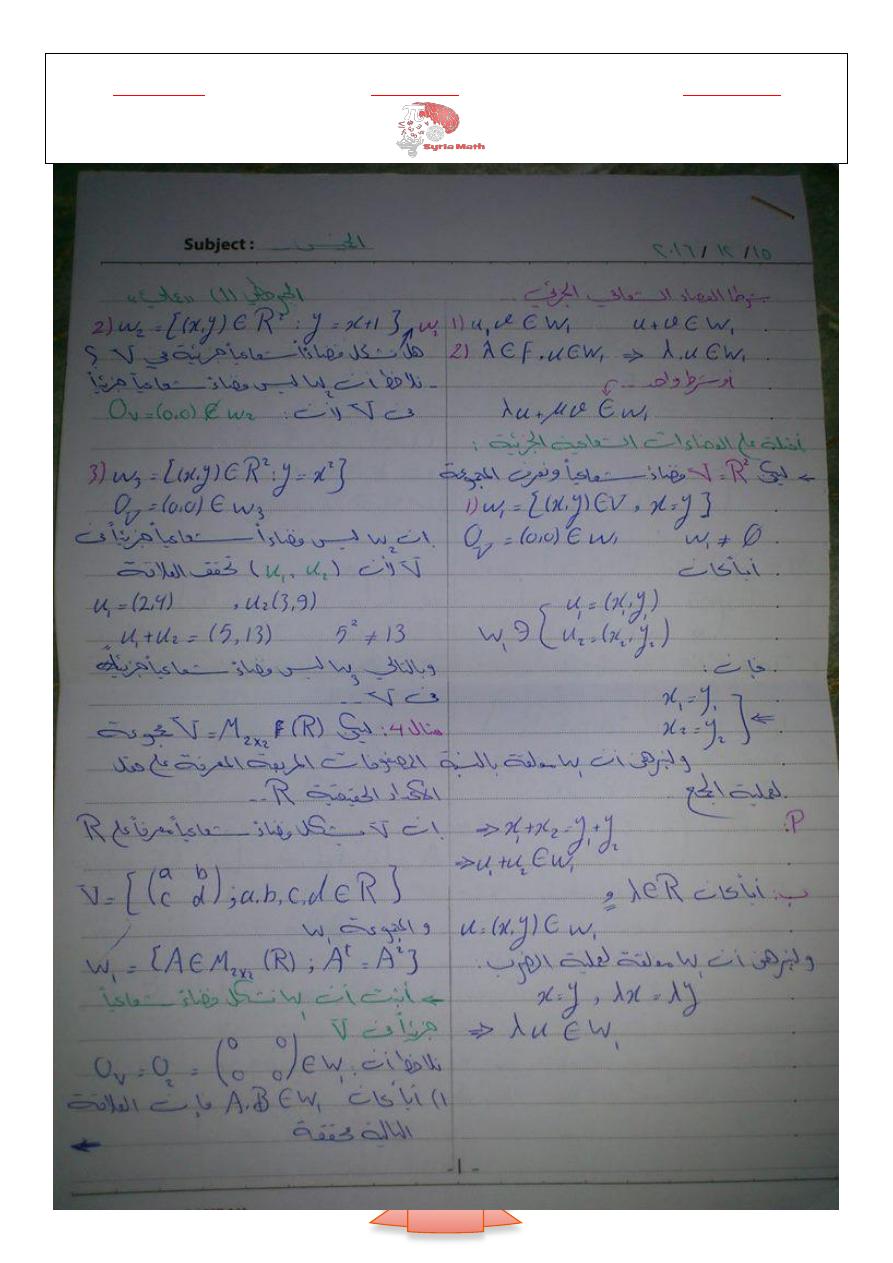 Syria Math
Subject : الخميس
٢٠١٦ / ١٢ / ١٥
شرطا الفضاء الشعاعي الجزئي
1) u,v ∈ W₁ u+v ∈ W₁
2) λ ∈ F, u ∈ W₁ ⇒ λ.u ∈ W₁
أو شرط واحد ...
λu+μv ∈ W₁
أمثلة على الفضاءات الشعاعية الجزئية :
ليكن V=R² فضاءً شعاعياً ونعرف المجموعة
1) W₁ = {(x,y) ∈ V , x=y}
O_V = (0,0) ∈ W₁ W₁ ≠ Ø
أياً كان
W₁ ∋ { u₁ = (x₁,y₁)
u₂ = (x₂,y₂)
فإن :
x₁ = y₁
x₂ = y₂ ] ⇐
ولنبرهن أن W₁ مغلقة بالنسبة
لعملية الجمع
P.
⇒ x₁+x₂ = y₁+y₂
⇒ u₁+u₂ ∈ W₁
ب. أياً كان λ∈R و
u=(x,y) ∈ W₁
ولنبرهن أن W₁ مغلقة لعملية الضرب.
x=y , λx = λy
⇒ λu ∈ W₁
2) W₂ = {(x,y) ∈ R² : y = x+1} , W₂
هل تشكل فضاءً شعاعياً جزئية في V ؟
- نلاحظ أن W₂ ليس فضاءً شعاعياً جزئياً
في V لأن : O_V=(0,0) ∉ W₂
3) W₃ = {(x,y) ∈ R² : y = x²}
O_V = (0,0) ∈ W₃
إن W₂ ليس فضاءاً شعاعياً جزئياً في
V لأن (u₁, u₂) تحقق العلاقة
u₁ = (2,4) , u₂(3,9)
u₁+u₂ = (5,13) 5² ≠ 13
وبالتالي W₃ ليس فضاءً شعاعياً جزئياً
في V ..
مثال 4 : ليكن V = M₂ₓ₂(R) مجموعة
المصفوفات المربعة المعرفة على حقل
الأعداد الحقيقية R ..
إن V يشكل فضاءً شعاعياً معرفاً على R
V = {(a b
c d) ; a,b,c,d ∈ R}
و المجموعة W₁
W₁ = {A ∈ M₂ₓ₂(R) ; Aᵗ = A²}
← أثبت أن W₁ تشكل فضاءً شعاعياً
جزئياً في V
نلاحظ أن : O_V = O₂ = (0 0
0 0) ∈ W₁
1) أياً كان A,B ∈ W₁ فإن العلاقة
التالية محققة
- 1 -